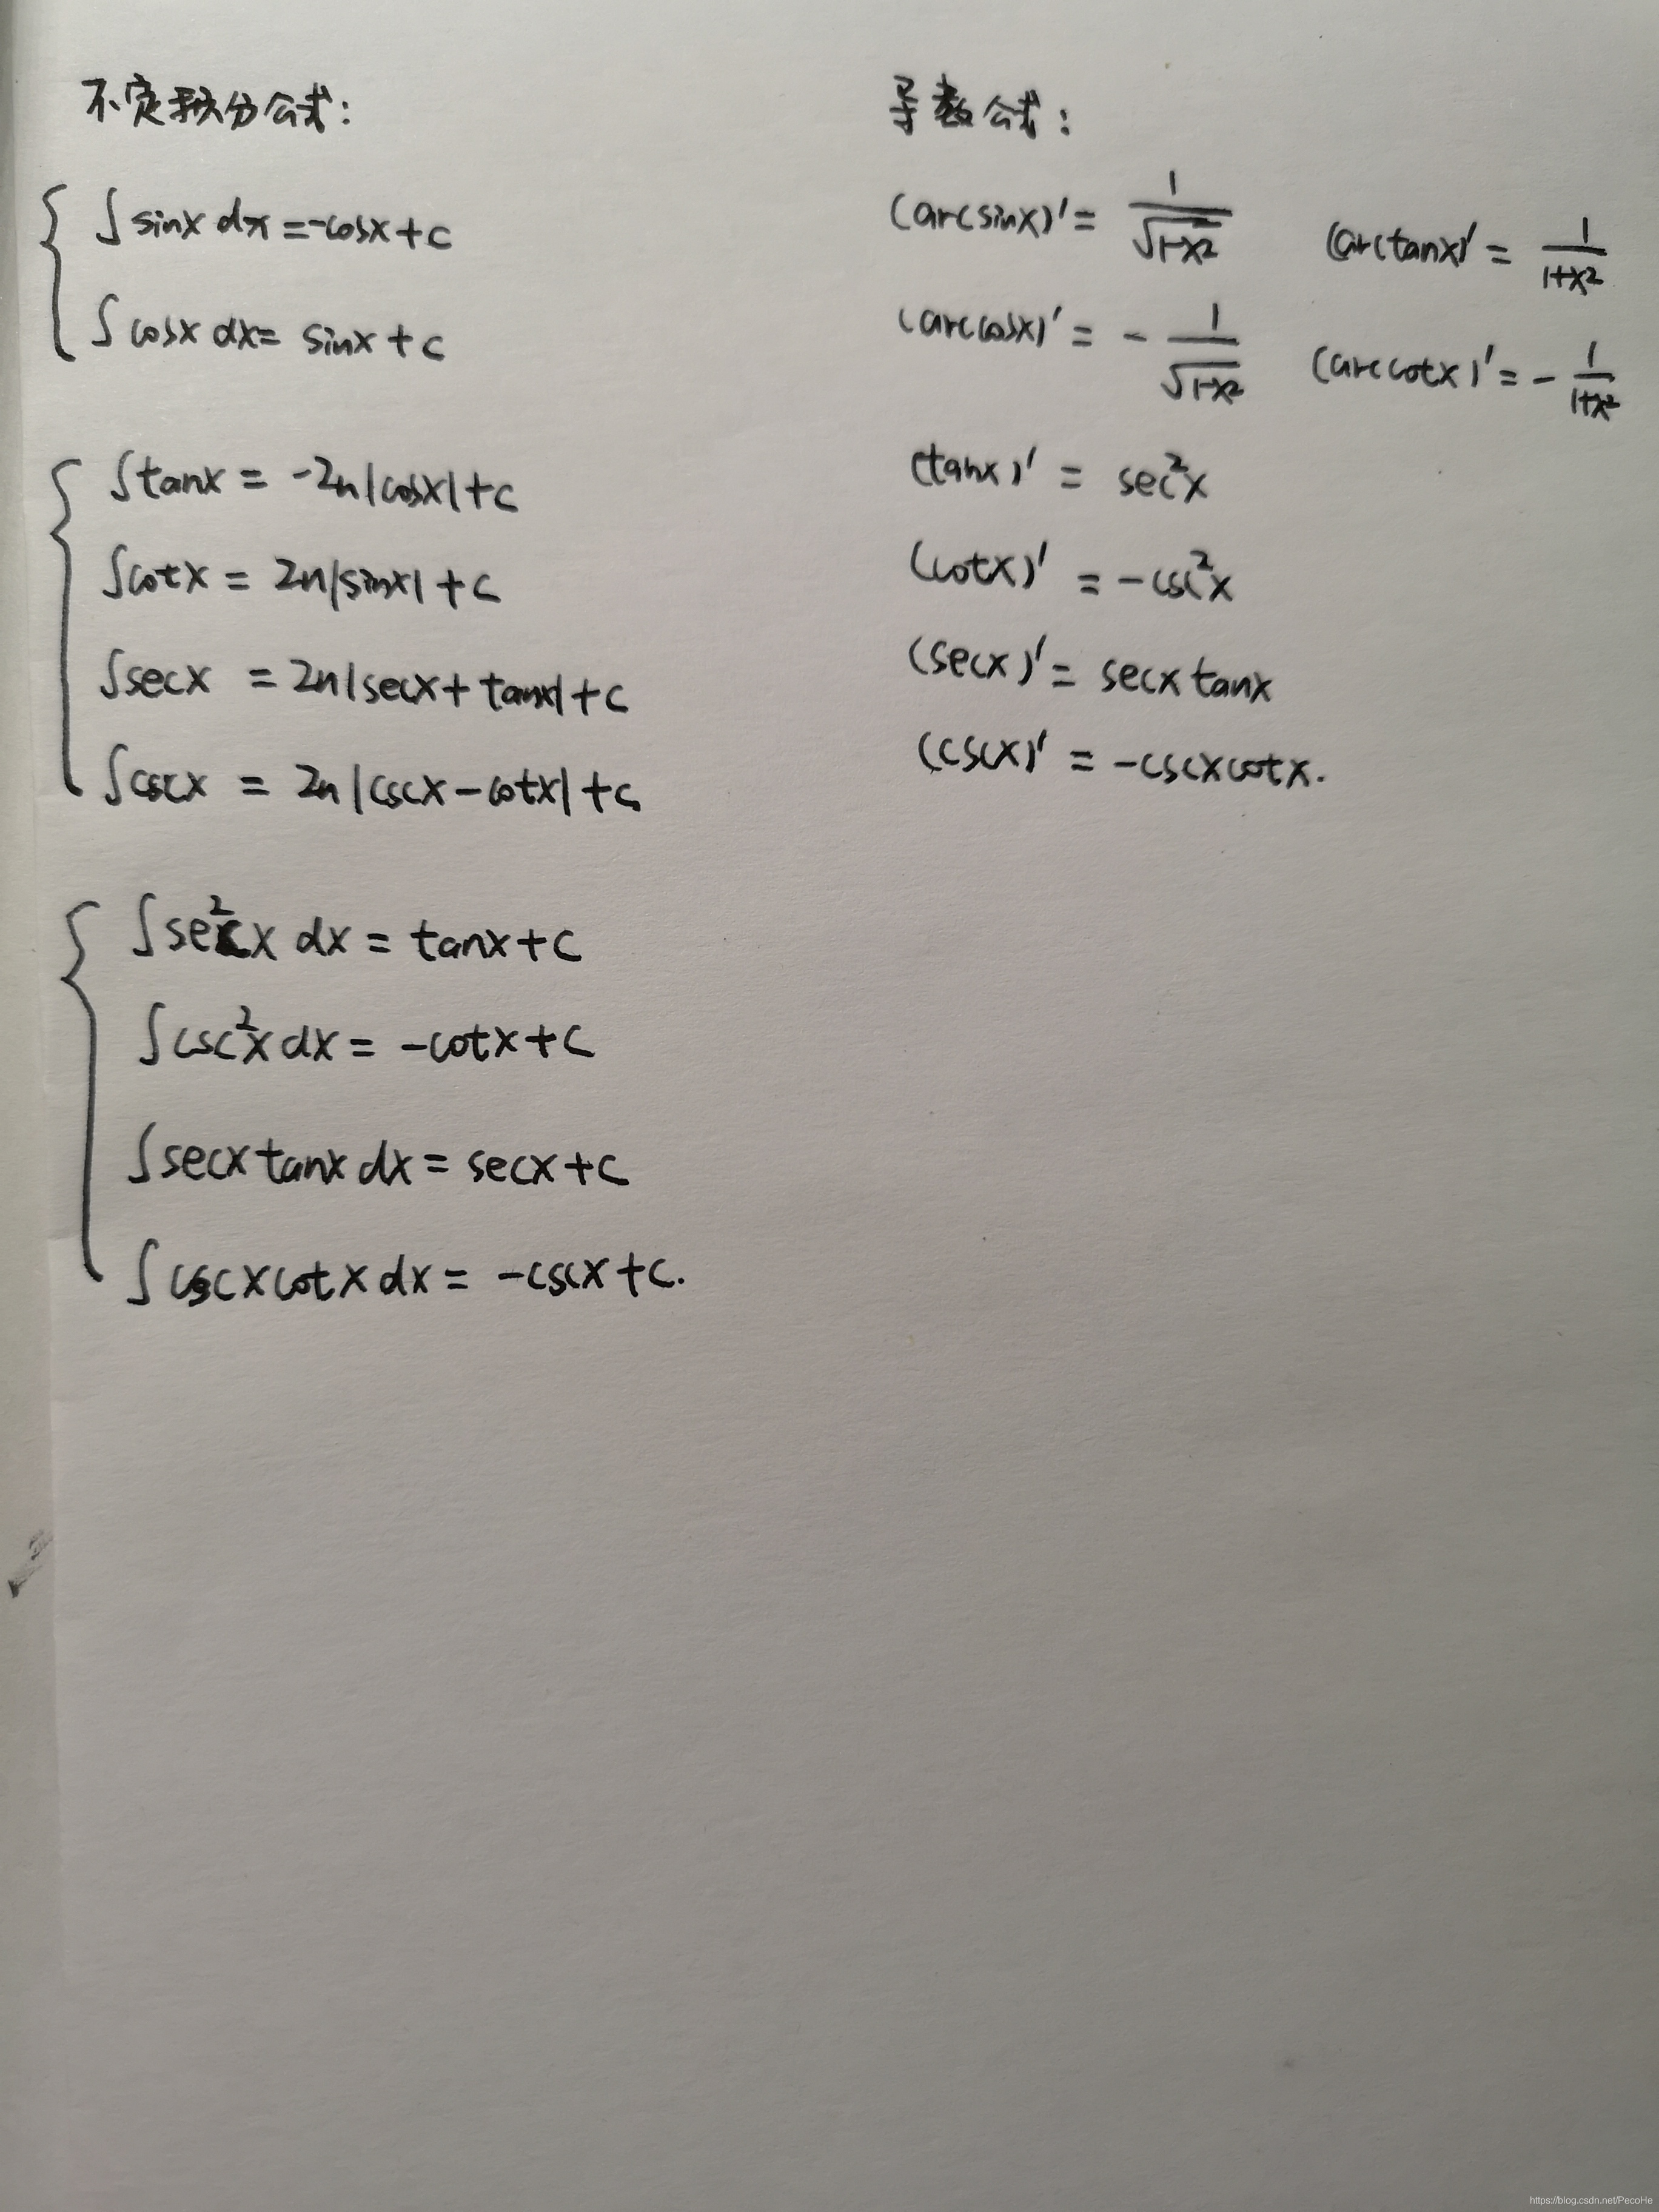 不定积分公式：
∫sinx dx = -cosx + c
∫cosx dx = sinx + c
∫tanx = -ln|cosx| + c
∫cotx = ln|sinx| + c
∫secx = ln|secx + tanx| + c
∫cscx = ln|cscx - cotx| + c
∫sec²x dx = tanx + c
∫csc²x dx = -cotx + c
∫secx tanx dx = secx + c
∫cscx cotx dx = -cscx + c.
导数公式：
(arcsinx)' = 1/√(1-x²)
(arccosx)' = - 1/√(1-x²)
(arctanx)' = 1/(1+x²)
(arccotx)' = - 1/(1+x²)
(tanx)' = sec²x
(cotx)' = -csc²x
(secx)' = secx tanx
(cscx)' = -cscx cotx.
https://blog.csdn.net/PecoHe